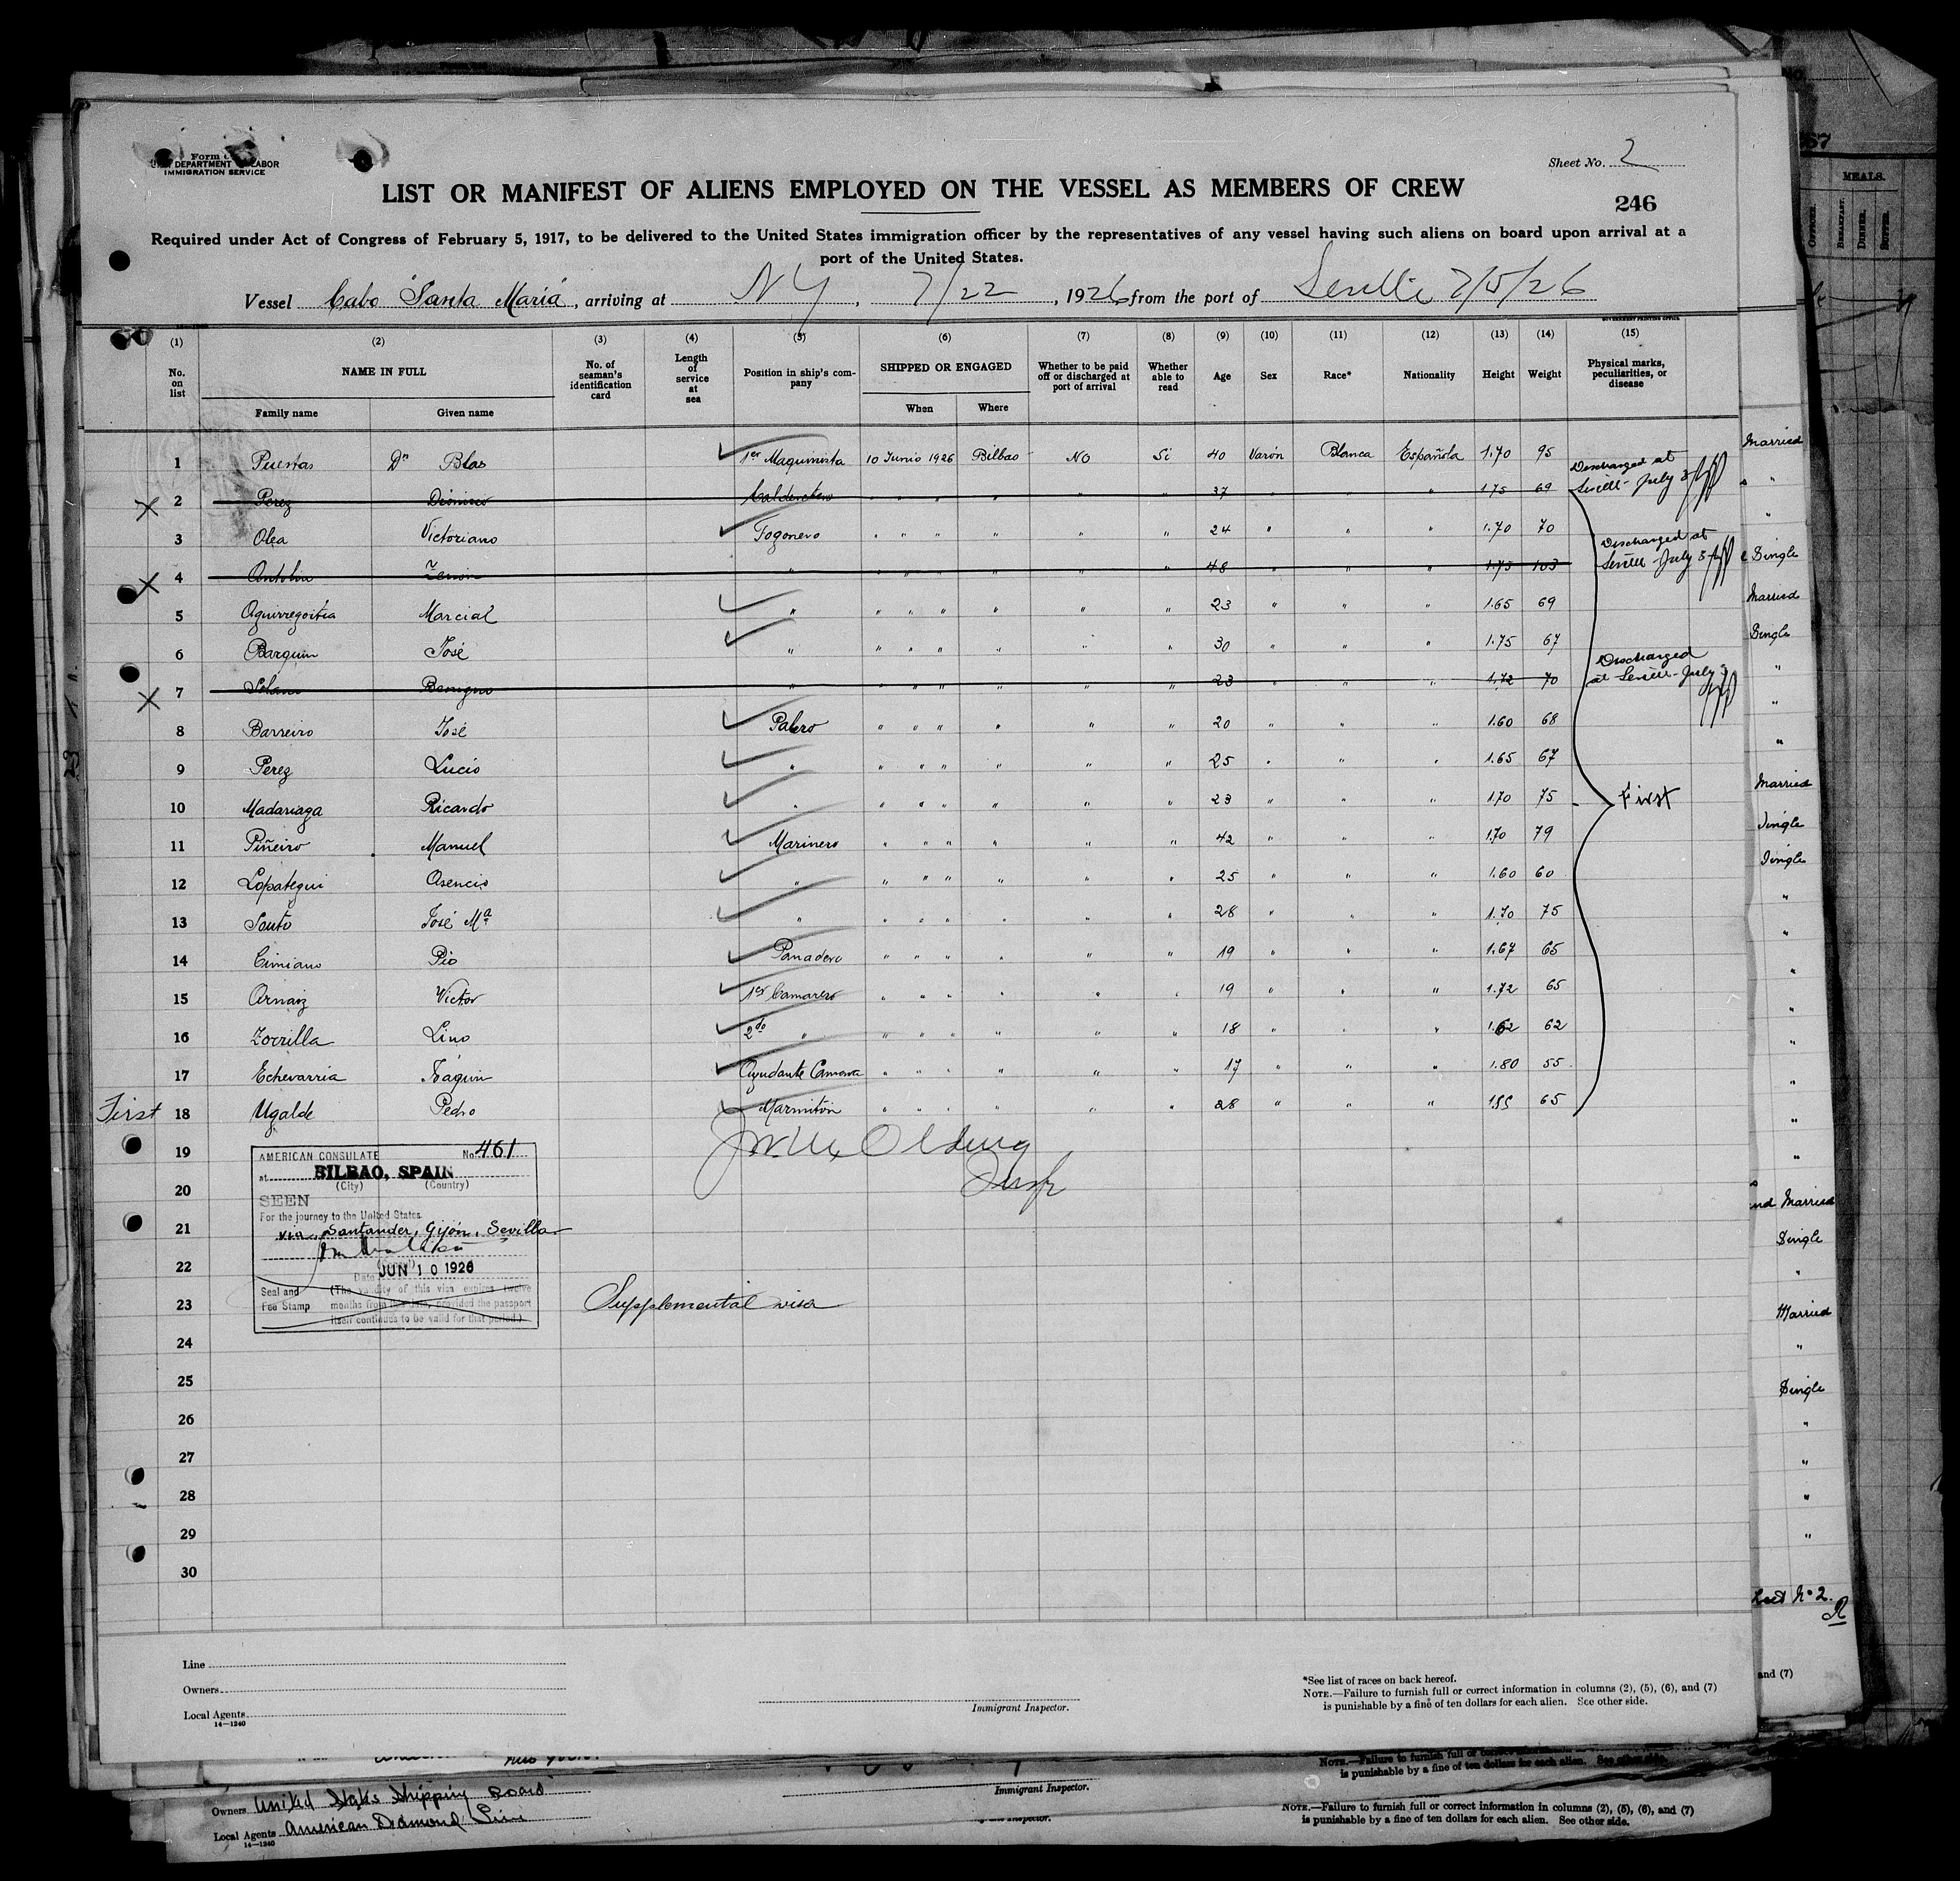 U. S. DEPARTMENT OF LABOR
IMMIGRATION SERVICE
Sheet No. 2
LIST OR MANIFEST OF ALIENS EMPLOYED ON THE VESSEL AS MEMBERS OF CREW
246
Required under Act of Congress of February 5, 1917, to be delivered to the United States immigration officer by the representatives of any vessel having such aliens on board upon arrival at a
port of the United States.
Vessel Cabo Santa Maria, arriving at NY, 7/22, 1926 from the port of Seville 7/5/26
GOVERNMENT PRINTING OFFICE
(1) (2) (3) (4) (5) (6) (7) (8) (9) (10) (11) (12) (13) (14) (15)
No. on list NAME IN FULL No. of seaman's identification card Length of service at sea Position in ship's company SHIPPED OR ENGAGED Whether to be paid off or discharged at port of arrival Whether able to read Age Sex Race* Nationality Height Weight Physical marks, peculiarities, or disease
Family name Given name When Where
1 Puestas Dn Blas 1er Maquinista 10 Junio 1926 Bilbao No Si 40 Varón Blanca Española 1.70 95 Married
2 Perez Dionisio Calderetero " " " " " " 37 " " " 1.75 69 Discharged at Seville July 3 "
3 Olea Victoriano Fogonero " " " " " " 24 " " " 1.70 70 "
4 Antolin " " " " " " " 48 " " " 1.75 103 Discharged at Seville July 3 Single
5 Aguirregoitia Marcial " " " " " " " 23 " " " 1.65 69 Married
6 Barquin José " " " " " " " 30 " " " 1.75 67 Single
7 Solano Benigno " " " " " " " 23 " " " 1.72 70 Discharged at Seville July 3 "
8 Barreiro José Palero " " " " " " 20 " " " 1.60 68 "
9 Perez Lucio " " " " " " " 25 " " " 1.65 67 "
10 Madariaga Ricardo " " " " " " " 23 " " " 1.70 75 First Married
11 Piñeiro Manuel Marinero " " " " " " 42 " " " 1.70 79 Single
12 Lopategui Asencio " " " " " " " 25 " " " 1.60 60 Single
13 Souto José Ma " " " " " " " 28 " " " 1.70 75 "
14 Cimiano Pio Panadero " " " " " " 19 " " " 1.67 65 "
15 Arnaiz Victor 1er Camarero " " " " " " 19 " " " 1.72 65 "
16 Zorrilla Lino 2do " " " " " " " 18 " " " 1.62 62 "
17 Echevarria Joaquin Ayudante Camara " " " " " " 17 " " " 1.80 55 "
First 18 Ugalde Pedro Marmiton " " " " " " 28 " " " 1.55 65 "
19
20
21
22
23
24
25
26
27
28
29
30
AMERICAN CONSULATE No. 461
at BILBAO, SPAIN
(City) (Country)
SEEN
For the journey to the United States
via Santander, Gijón, Sevilla
Date JUN 10 1926
Seal and Fee Stamp
(The validity of this visa expires twelve
months from this date, provided the passport
itself continues to be valid for that period.)
Supplemental visa
and Married
Single
"
Married
"
Single
"
"
"
"
List No 2.
and (7)
MEALS.
BREAKFAST.
DINNER.
SUPPER.
Line
Owners
Local Agents
14—1240
Immigrant Inspector.
*See list of races on back hereof.
NOTE.—Failure to furnish full or correct information in columns (2), (5), (6), and (7)
is punishable by a fine of ten dollars for each alien. See other side.
NOTE.—Failure to furnish full or correct
is punishable by a fine of ten dollars for each alien. See other side.
Immigrant Inspector.
Owners United States Shipping Board
Local Agents American Diamond Line
14—1240
NOTE.—Failure to furnish full or correct information in columns (2), (5), (6), and (7)
is punishable by a fine of ten dollars for each alien. See other side.